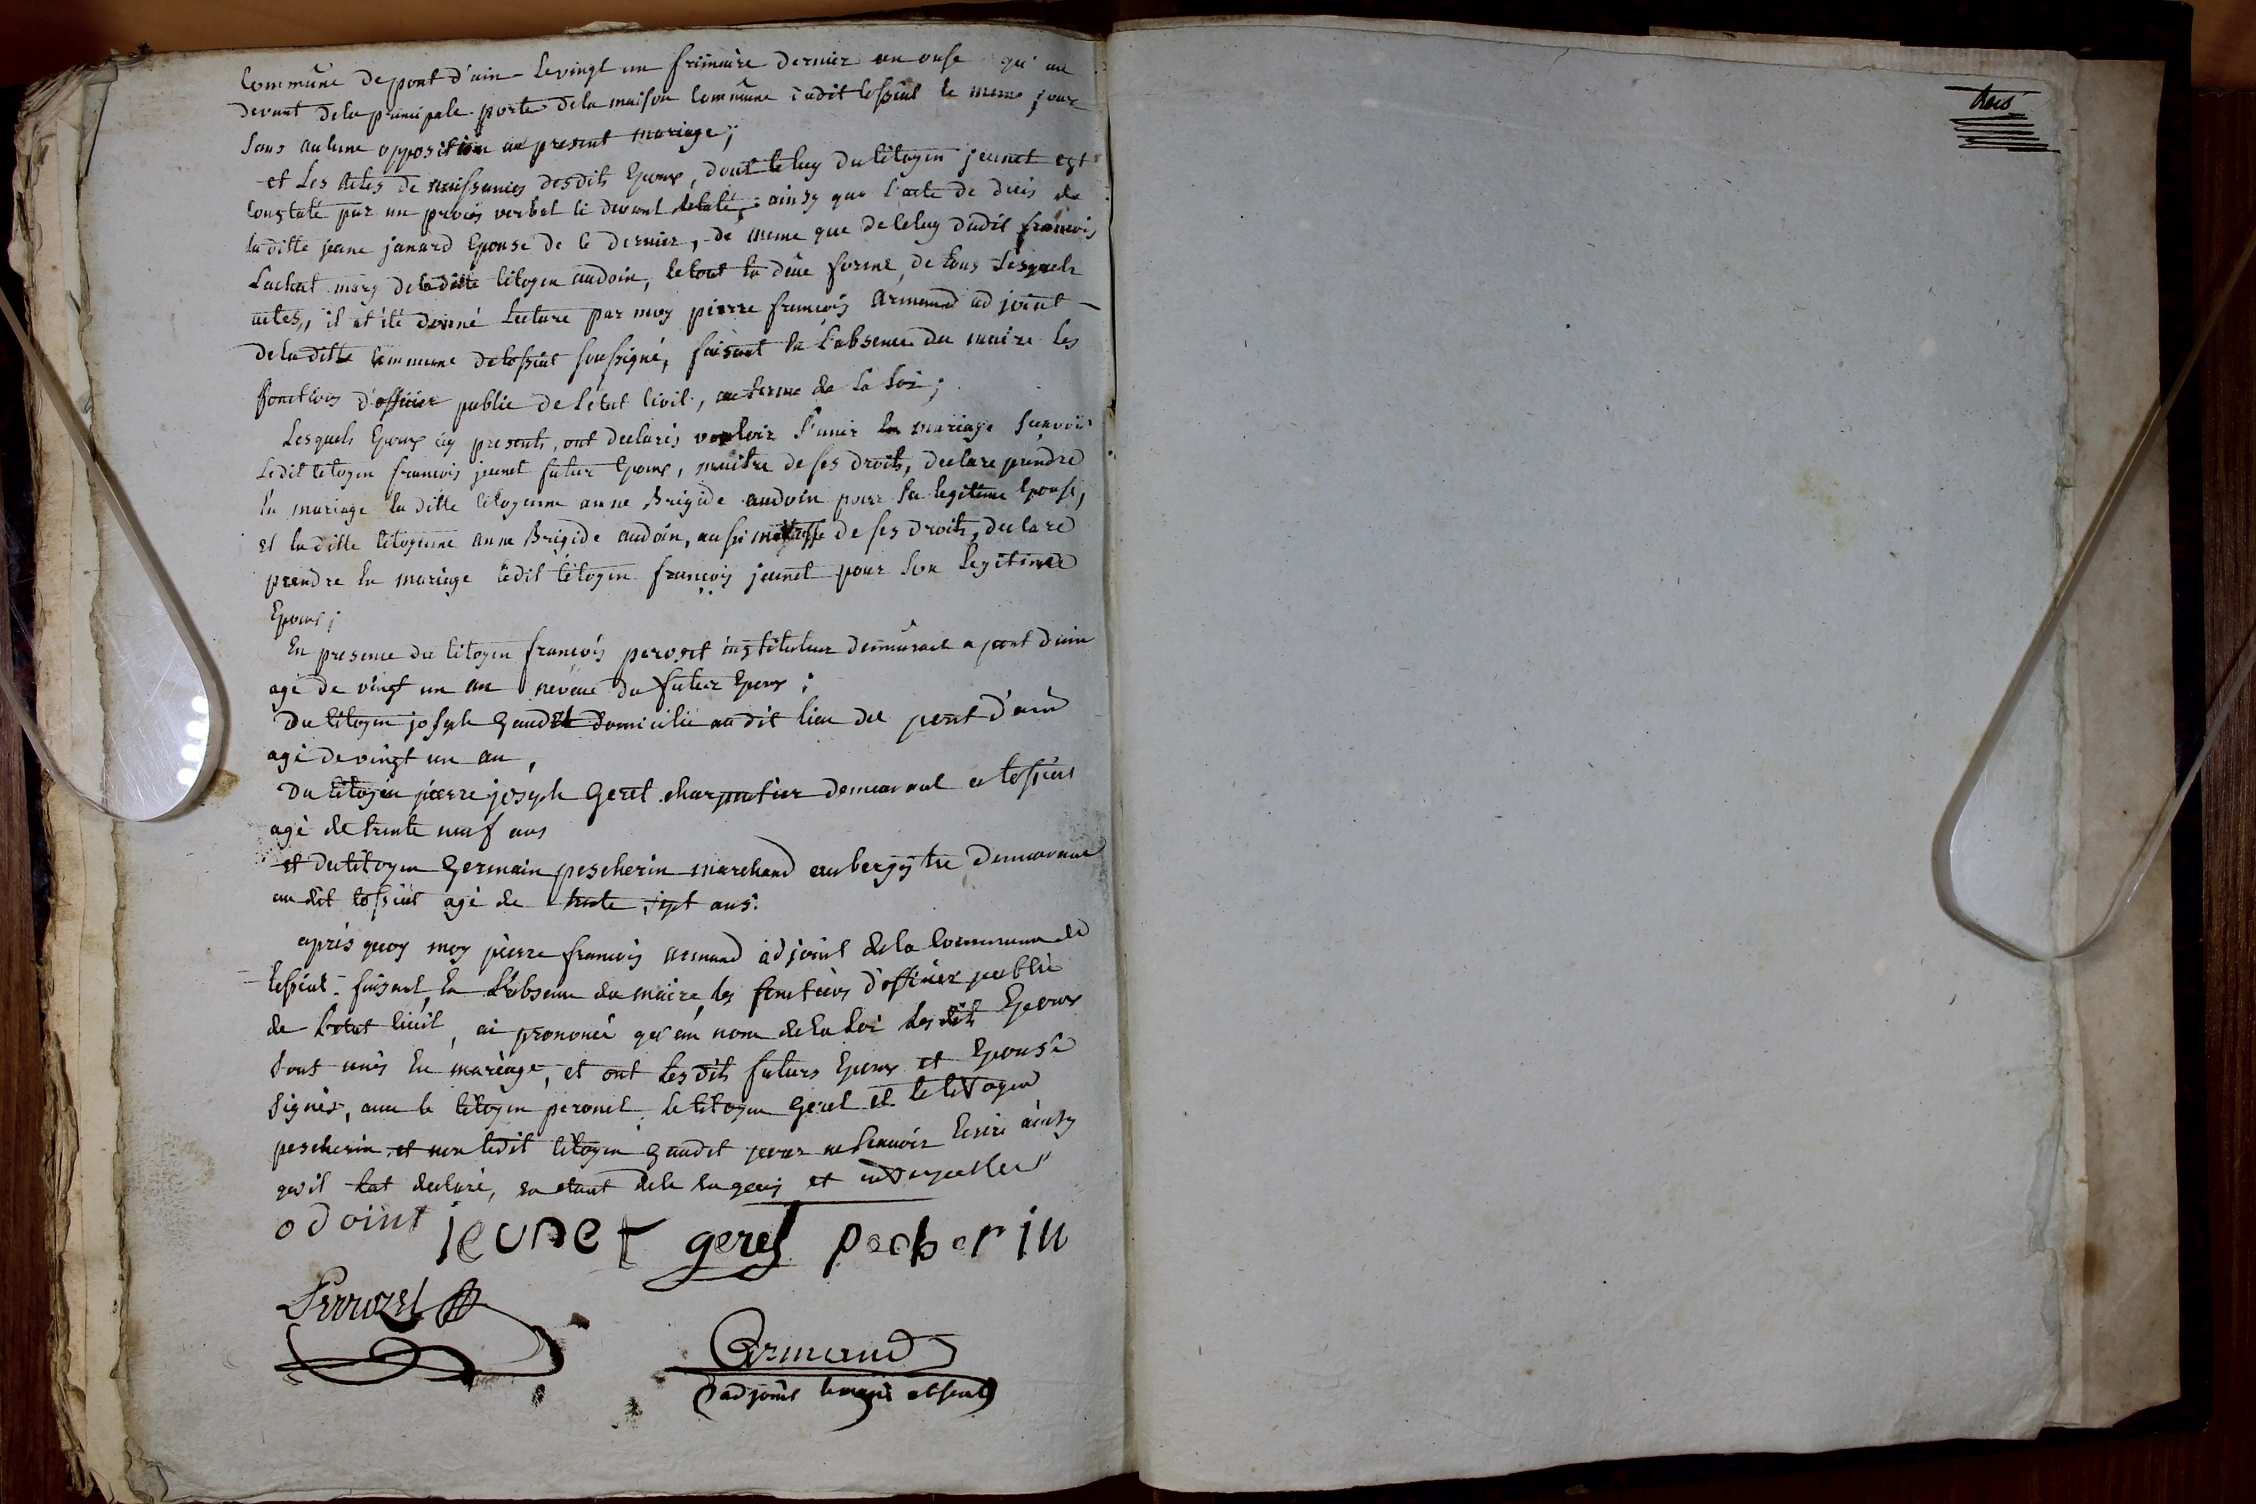 Commune de pont d'ain le vingt un frimaire dernier an onse qu'au
devant de la principale porte de la maison Commune dudit tossiat le meme jour
sans aucune opposition au present mariage;
et les actes de naissances desdits Epoux, dont celuy du citoyen jeunet est
Constaté par un procès verbal ci devant relaté, ainsy que l'acte de décès de
laditte jeane janard Epouse de ce dernier, de meme que de celuy dudit françois
Lachat mary de laditte citoyen audoin, le tout en düe forme, de tous lesquels
actes, il at été donné Lecture par moy pierre françois Armand adjoint
de la ditte Commune de tossiat soussigné, faisant en l'absence du maire les
fonctions d'officier public de l'état Civil, au terme de la Loi;
Lesquels Epoux icy presents, ont declarés vouloir s'unir en mariage scavoir
Ledit citoyen françois jeunet futur Epoux, maitre de ses droits, declare prendre
En mariage la ditte citoyenne anne Brigide audoin pour sa legitime Epouse,
et la ditte citoyenne anne Brigide audoin, aussi maitresse de ses droits, declare
prendre En mariage ledit citoyen françois jeunet pour son Legitime
Epoux;
En presence du citoyen françois peroset instituteur demeurant a pont d'ain
agé de vingt un an neveux du futur Epoux;
Du citoyen joseph gaudet domicilié au dit lieu de pont d'ain
agé de vingt un an,
Du citoyen pierre joseph geret charpentier demeurant a tossiat
agé de trente neuf ans
et du citoyen germain pescherin marchand aubergiste demeurant
au dit tossiat agé de trente sept ans.
après quoy moy pierre françois armand adjoint de la Commune de
tossiat faisant en l'absence du maire les fonctions d'officier public
de l'etat Civil, ai prononcé qu'au nom de la Loi lesdits Epoux
sont unis En mariage, et ont lesdits futurs Epoux et Epouse
signés, avec le citoyen peronet, le citoyen geret et le citoyen
pescherin et non ledit citoyen gaudet pour ne scavoir Ecrire ainsy
qu'il lat declaré, de ce enquis et interpellé
odoint jeunet geret pecherin
Perrozet
Armand
adjoint le maire absent
trois